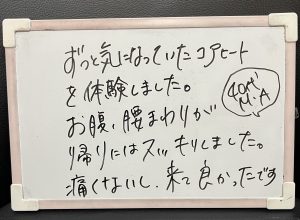 ずっと気になっていたコアヒート
を体験しました。
お腹、腰まわりが
帰りにはスッキリしました。
痛くないし、来て良かったです
40代
M・A